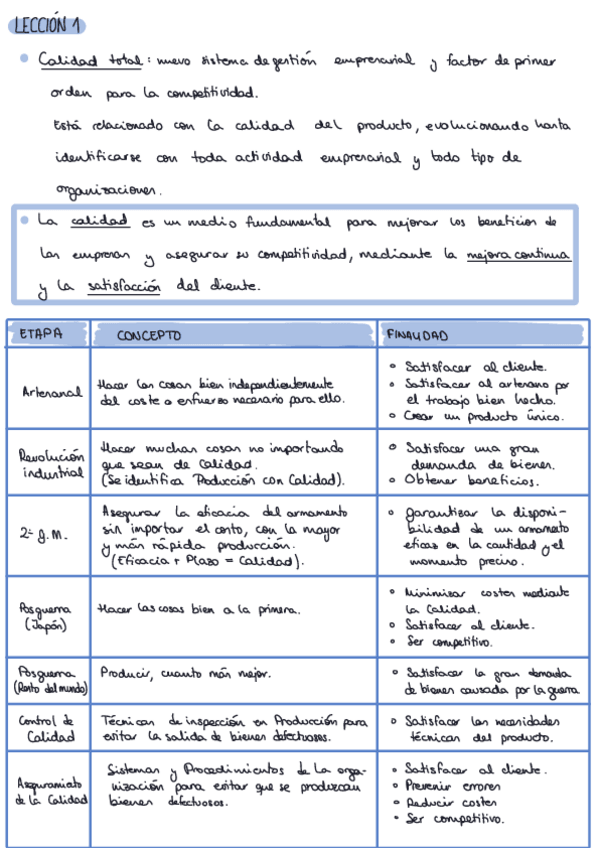 LECCIÓN 1
Calidad total: nuevo sistema de gestión empresarial y factor de primer
orden para la competitividad.
Está relacionado con la calidad del producto, evolucionando hasta
identificarse con toda actividad empresarial y todo tipo de
organizaciones.
La calidad es un medio fundamental para mejorar los beneficios de
las empresas y asegurar su competitividad, mediante la mejora continua
y la satisfacción del cliente.
ETAPA
CONCEPTO
FINALIDAD
Artesanal
Hacer las cosas bien independientemente
del coste o esfuerzo necesario para ello.
Satisfacer al cliente.
Satisfacer al artesano por
el trabajo bien hecho.
Crear un producto único.
Revolución
industrial
Hacer muchas cosas no importando
que sean de Calidad.
(Se identifica Producción con Calidad).
Satisfacer una gran
demanda de bienes.
Obtener beneficios.
2ª g.M.
Asegurar la eficacia del armamento
sin importar el costo, con la mayor
y más rápida producción.
(Eficacia + Plazo = Calidad).
garantizar la disponi-
bilidad de un armamento
eficaz en la cantidad y el
momento preciso.
Posguerra
(Japón)
Hacer las cosas bien a la primera.
Minimizar costes mediante
la Calidad.
Satisfacer al cliente.
Ser competitivo.
Posguerra
(Resto del mundo)
Producir, cuanto más mejor.
Satisfacer la gran demanda
de bienes causada por la guerra
Control de
Calidad
Técnicas de inspección en Producción para
evitar la salida de bienes defectuosos.
Satisfacer las necesidades
técnicas del producto.
Aseguramiento
de la Calidad
Sistemas y Procedimientos de la orga-
nización para evitar que se produzcan
bienes defectuosos.
Satisfacer al cliente.
Prevenir errores
Reducir costes
Ser competitivo.